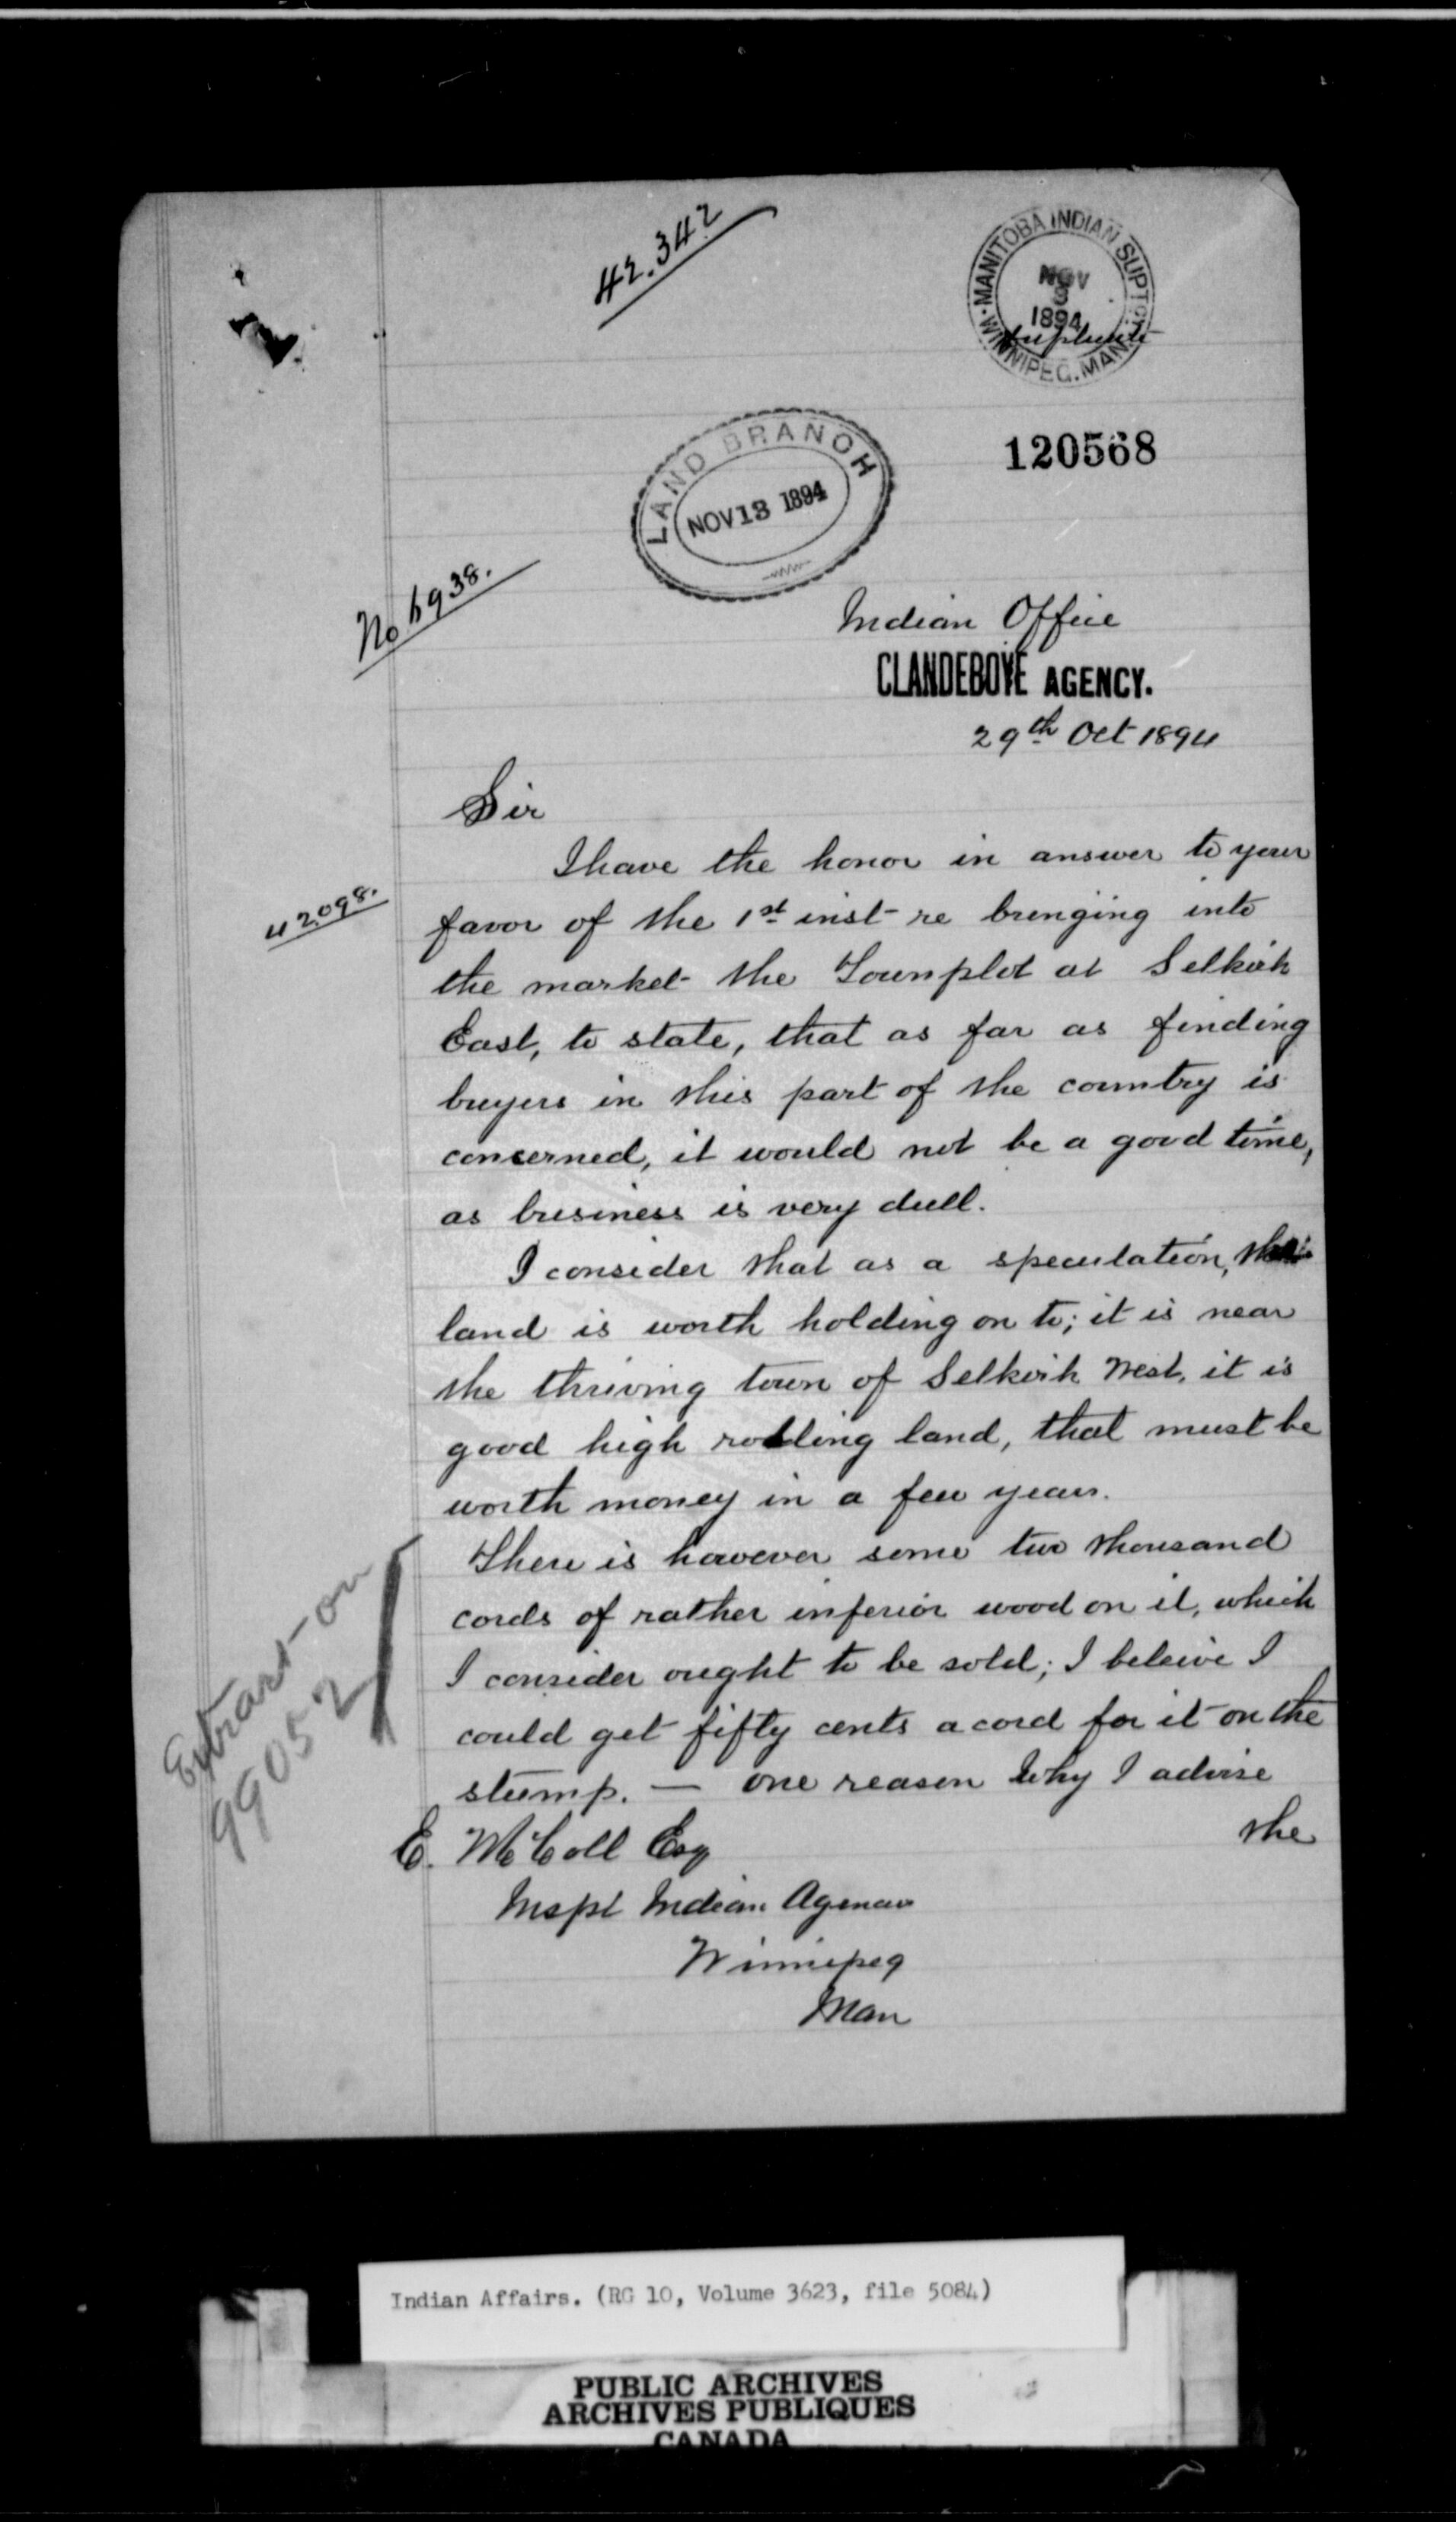 42.342
MANITOBA INDIAN SUPTCY.
NOV
3
1894
WINNIPEG. MAN.
120568
LAND BRANCH
NOV 13 1894
No 6938.
Indian Office
CLANDEBOYE AGENCY.
29th Oct 1894
Sir
I have the honor in answer to your
42098.
favor of the 1st inst- re bringing into
the market- the Townplot at Selkirk
East, to state, that as far as finding
buyers in this part of the country is
concerned, it would not be a good time,
as business is very dull.
I consider that as a speculation, this
land is worth holding on to; it is near
the thriving town of Selkirk West, it is
good high rolling land, that must be
worth money in a few years.
There is however some two thousand
cords of rather inferior wood on it, which
I consider ought to be sold; I beleive I
could get fifty cents a cord for it on the
stump. — one reason why I advise
the
Extract on
99052
E. McColl Esq
Inspt Indian Agencies
Winnipeg
Man
Indian Affairs. (RG 10, Volume 3623, file 5084)
PUBLIC ARCHIVES
ARCHIVES PUBLIQUES
CANADA